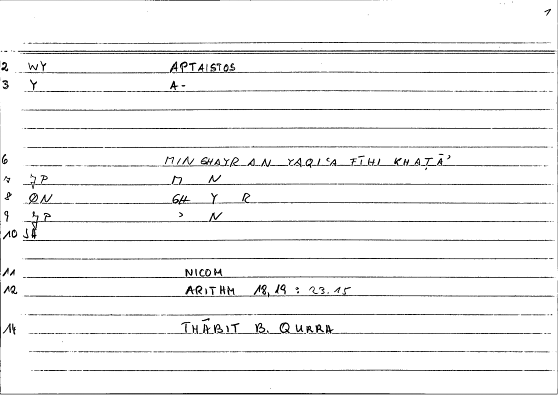 1
2 WY APTAISTOS
3 Y A-
6 MIN GHAYR AN YAQIʿA FĪHI KHAṬĀʾ
7 JP M N
8 ØN GH Y R
9 JP ʾ N
10 JA
11 NICOM
12 ARITHM 18,19 : 23.15
14 THĀBIT B. QURRA